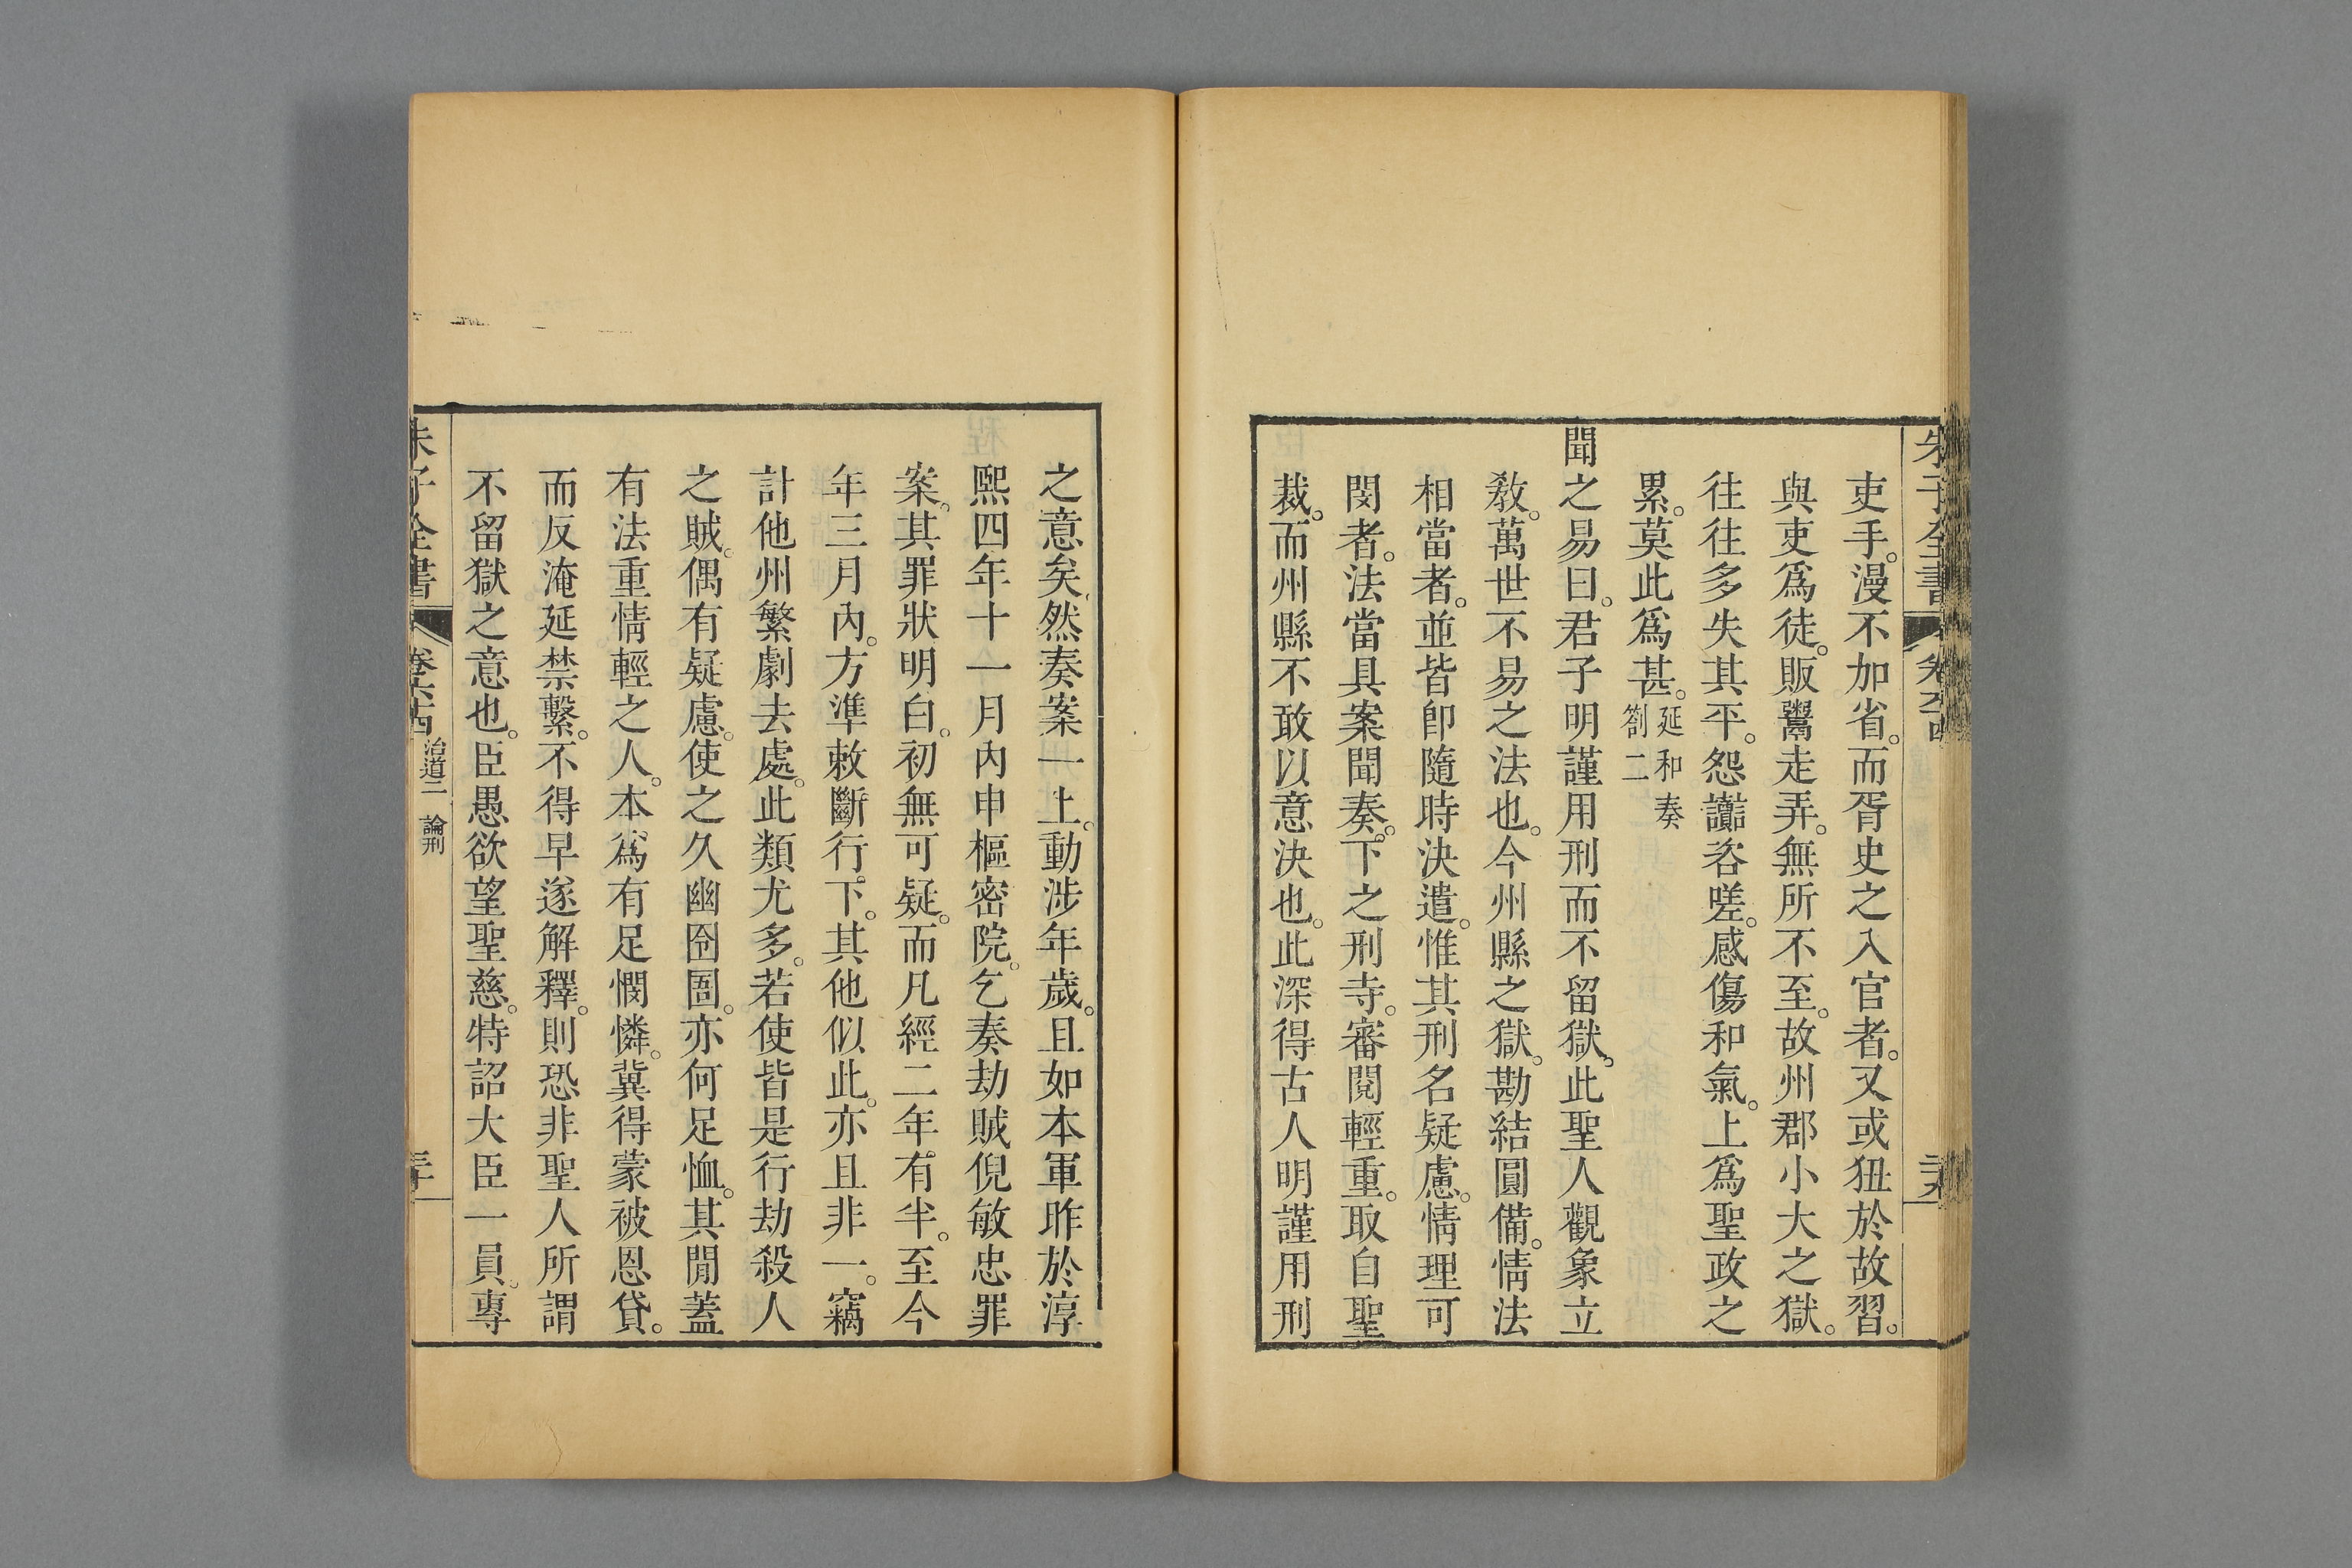 朱子全書 卷六十四 二十九
吏手。漫不加省。而胥史之入官者。又或狃於故習。
與吏爲徒。販鬻走弄。無所不至。故州郡小大之獄。
往往多失其平。怨讟咨嗟。感傷和氣。上爲聖政之
累。莫此爲甚。延和奏劄二
聞之易曰。君子明謹用刑而不留獄。此聖人觀象立
敎。萬世不易之法也。今州縣之獄。勘結圓備。情法
相當者。並皆卽隨時決遣。惟其刑名疑慮。情理可
閔者。法當具案聞奏。下之刑寺。審閱輕重。取自聖
裁。而州縣不敢以意決也。此深得古人明謹用刑
之意矣。然奏案一上。動涉年歲。且如本軍昨於淳
熙四年十一月內申樞密院。乞奏劫賊倪敏忠罪
案。其罪狀明白。初無可疑。而凡經二年有半。至今
年三月內。方準敕斷行下。其他似此。亦且非一。竊
計他州繁劇去處。此類尤多。若使皆是行劫殺人
之賊。偶有疑慮。使之久幽囹圄。亦何足恤。其閒蓋
有法重情輕之人。本爲有足憫憐。冀得蒙被恩貸。
而反淹延禁繫。不得早遂解釋。則恐非聖人所謂
不留獄之意也。臣愚欲望聖慈。特詔大臣一員。專
朱子全書 卷六十四 治道二 論刑 三十